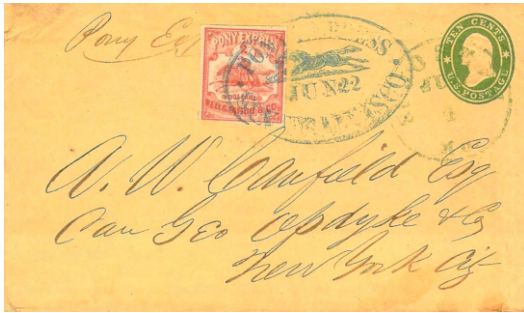 Pony Ex
PONY EXPRESS
WELLS FARGO & CO.
JUN 22
SAN FRANCISCO
TEN CENTS
U.S. POSTAGE
A. W. Canfield Esq
Care Geo Opdyke & Co
New York City